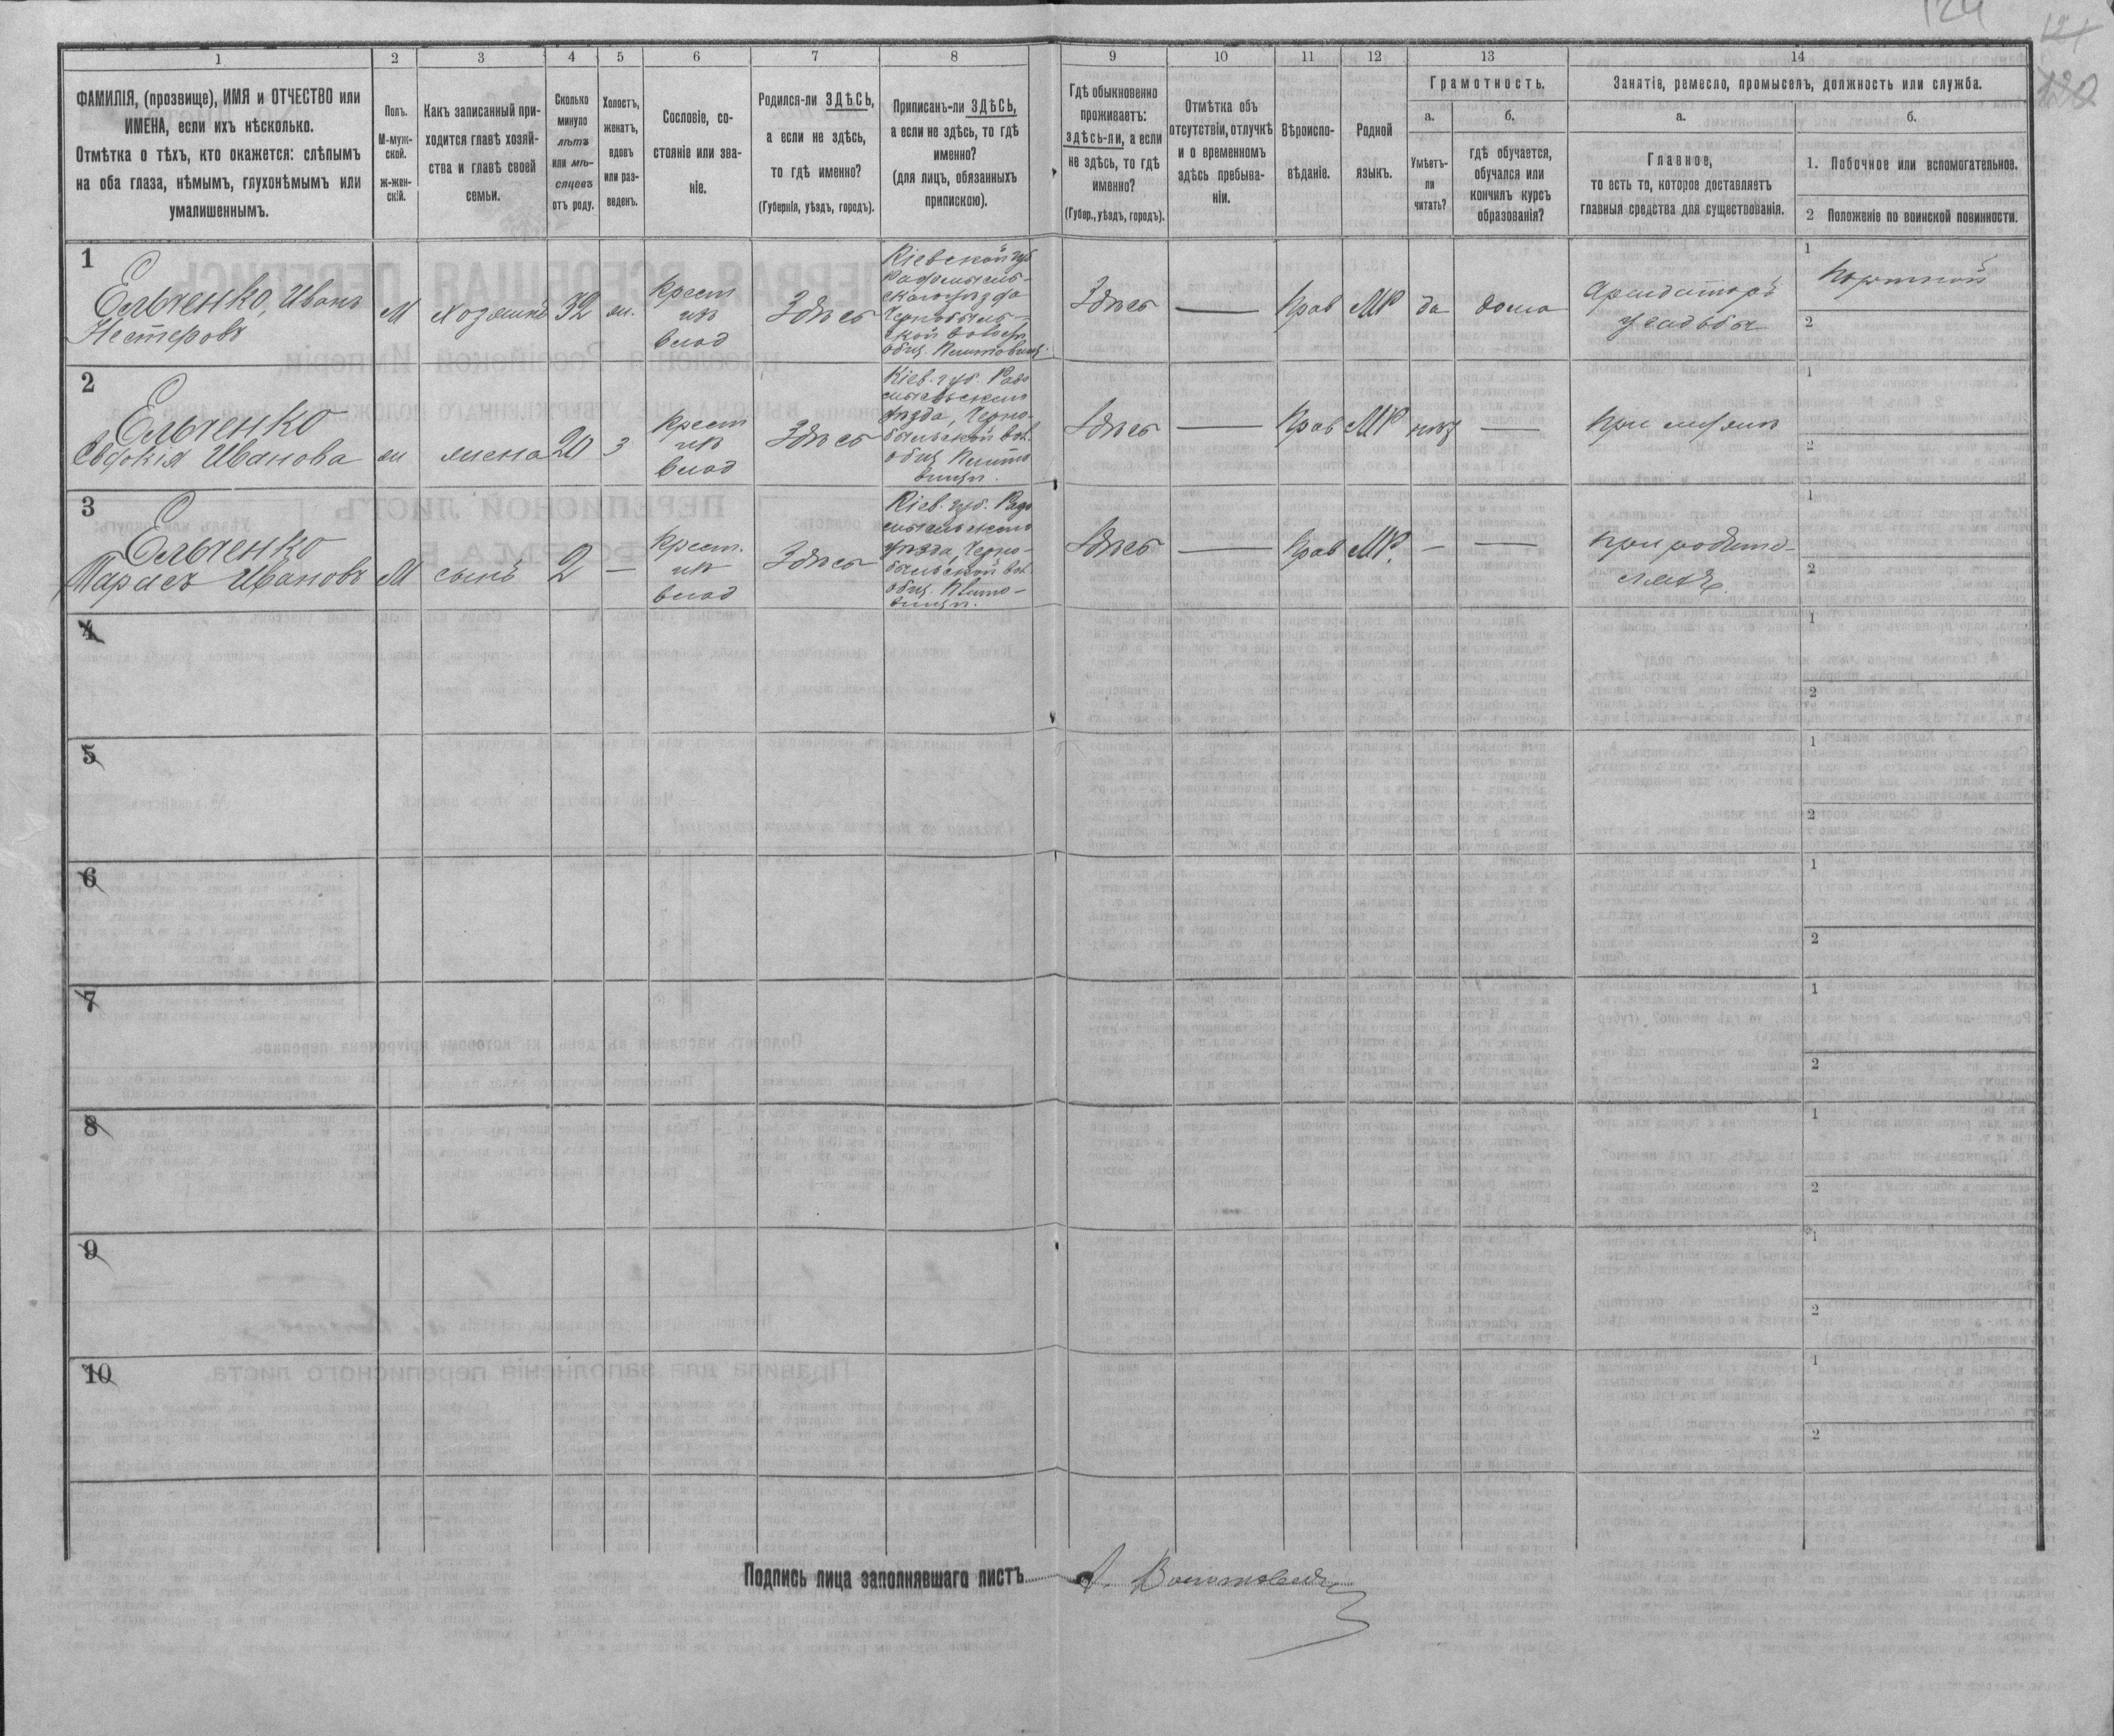 124
1
ФАМИЛІЯ, (прозвище), ИМЯ и ОТЧЕСТВО или
ИМЕНА, если ихъ нѣсколько.
Отмѣтка о тѣхъ, кто окажется: слѣпымъ
на оба глаза, нѣмымъ, глухонѣмымъ или
умалишеннымъ.
2
Полъ.
М-муж-
ской.
ж-жен-
скій.
3
Какъ записанный при-
ходится главѣ хозяй-
ства и главѣ своей
семьи.
4
Сколько
минуло
лѣтъ
или мѣ-
сяцевъ
отъ роду.
5
Холостъ,
женатъ,
вдовъ
или раз-
веденъ.
6
Сословіе, со-
стояніе или зва-
ніе.
7
Родился-ли ЗДѢСЬ,
а если не здѣсь,
то гдѣ именно?
(Губернія, уѣздъ, городъ).
8
Приписанъ-ли ЗДѢСЬ,
а если не здѣсь, то гдѣ
именно?
(для лицъ, обязанныхъ
припискою).
9
Гдѣ обыкновенно
проживаетъ:
здѣсь-ли, а если
не здѣсь, то гдѣ
именно?
(Губер., уѣздъ, городъ).
10
Отмѣтка объ
отсутствіи, отлучкѣ
и о временномъ
здѣсь пребыва-
ніи.
11
Вѣроиспо-
вѣданіе.
12
Родной
языкъ.
13
Грамотность.
а.
Умѣетъ-
ли
читать?
б.
гдѣ обучается,
обучался или
кончилъ курсъ
образованія?
14
Занятіе, ремесло, промыселъ, должность или служба.
а.
Главное,
то есть то, которое доставляетъ
главныя средства для существованія.
б.
1. Побочное или вспомогательное.
2 Положеніе по воинской повинности.
1
Ельченко, Иванъ
Нестеровъ
М
хозяинъ
32
ж.
крест
изъ
влад
Здѣсь
Кіевской губ
Радомысль-
скаго уѣзда
Чернобыль-
ской волости
общ.
Здѣсь
—
Прав
МР
да
дома
Арендаторъ
усадьбы
1
Портной
2
2
Ельченко
Евдокія Иванова
ж
жена
20
З
крест
изъ
влад
Здѣсь
Кіев. губ. Радо
мысльскаго
уѣзда, Черно-
быльской вол.
общ.
Здѣсь
—
Прав
МР
нѣтъ
—
при мужѣ
1
2
3
Ельченко
Тарасъ Ивановъ
М
сынъ
2
—
крест.
изъ
влад
Здѣсь
Кіев. губ. Радо
мысльскаго
уѣзда, Черно-
быльской вол.
общ.
Здѣсь
—
Прав
МР.
—
—
при родите-
ляхъ
1
2
4
1
2
5
1
2
6
1
2
7
1
2
8
1
2
9
1
2
10
1
2
Подпись лица заполнявшаго листъ